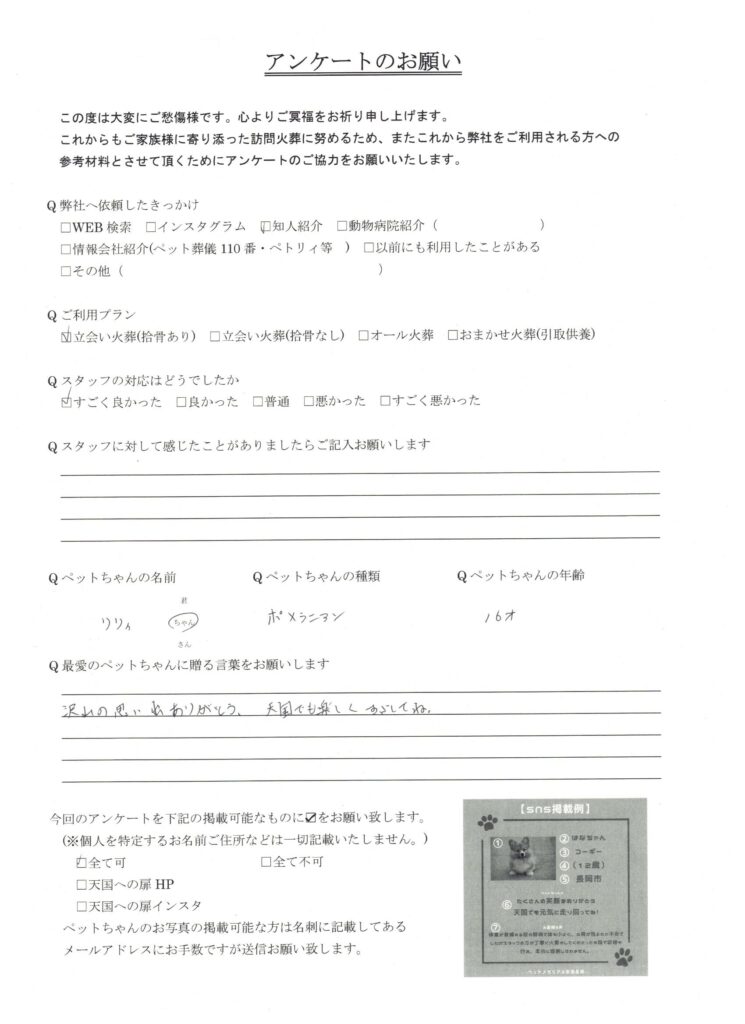 アンケートのお願い
この度は大変にご愁傷様です。心よりご冥福をお祈り申し上げます。
これからもご家族様に寄り添った訪問火葬に努めるため、またこれから弊社をご利用される方への
参考材料とさせて頂くためにアンケートのご協力をお願いいたします。
Q 弊社へ依頼したきっかけ
□WEB 検索 □インスタグラム ☑知人紹介 □動物病院紹介（ ）
□情報会社紹介(ペット葬儀 110 番・ペトリィ等 ) □以前にも利用したことがある
□その他（ ）
Q ご利用プラン
☑立会い火葬(拾骨あり) □立会い火葬(拾骨なし) □オール火葬 □おまかせ火葬(引取供養)
Q スタッフの対応はどうでしたか
☑すごく良かった □良かった □普通 □悪かった □すごく悪かった
Q スタッフに対して感じたことがありましたらご記入お願いします
Q ペットちゃんの名前 Q ペットちゃんの種類 Q ペットちゃんの年齢
君
リリィ ちゃん ポメラニアン 16才
さん
Q 最愛のペットちゃんに贈る言葉をお願いします
沢山の思い出ありがとう、天国でも楽しくすごしてね。
今回のアンケートを下記の掲載可能なものに☑をお願い致します。
(※個人を特定するお名前ご住所などは一切記載いたしません。)
☑全て可 □全て不可
□天国への扉 HP
□天国への扉インスタ
ペットちゃんのお写真の掲載可能な方は名刺に記載してある
メールアドレスにお手数ですが送信お願い致します。
【sns掲載例】
① ② はなちゃん
③ コーギー
④ (12歳)
⑤ 長岡市
⑥ たくさんの笑顔をありがとう
天国でも元気に走り回ってね!
⑦